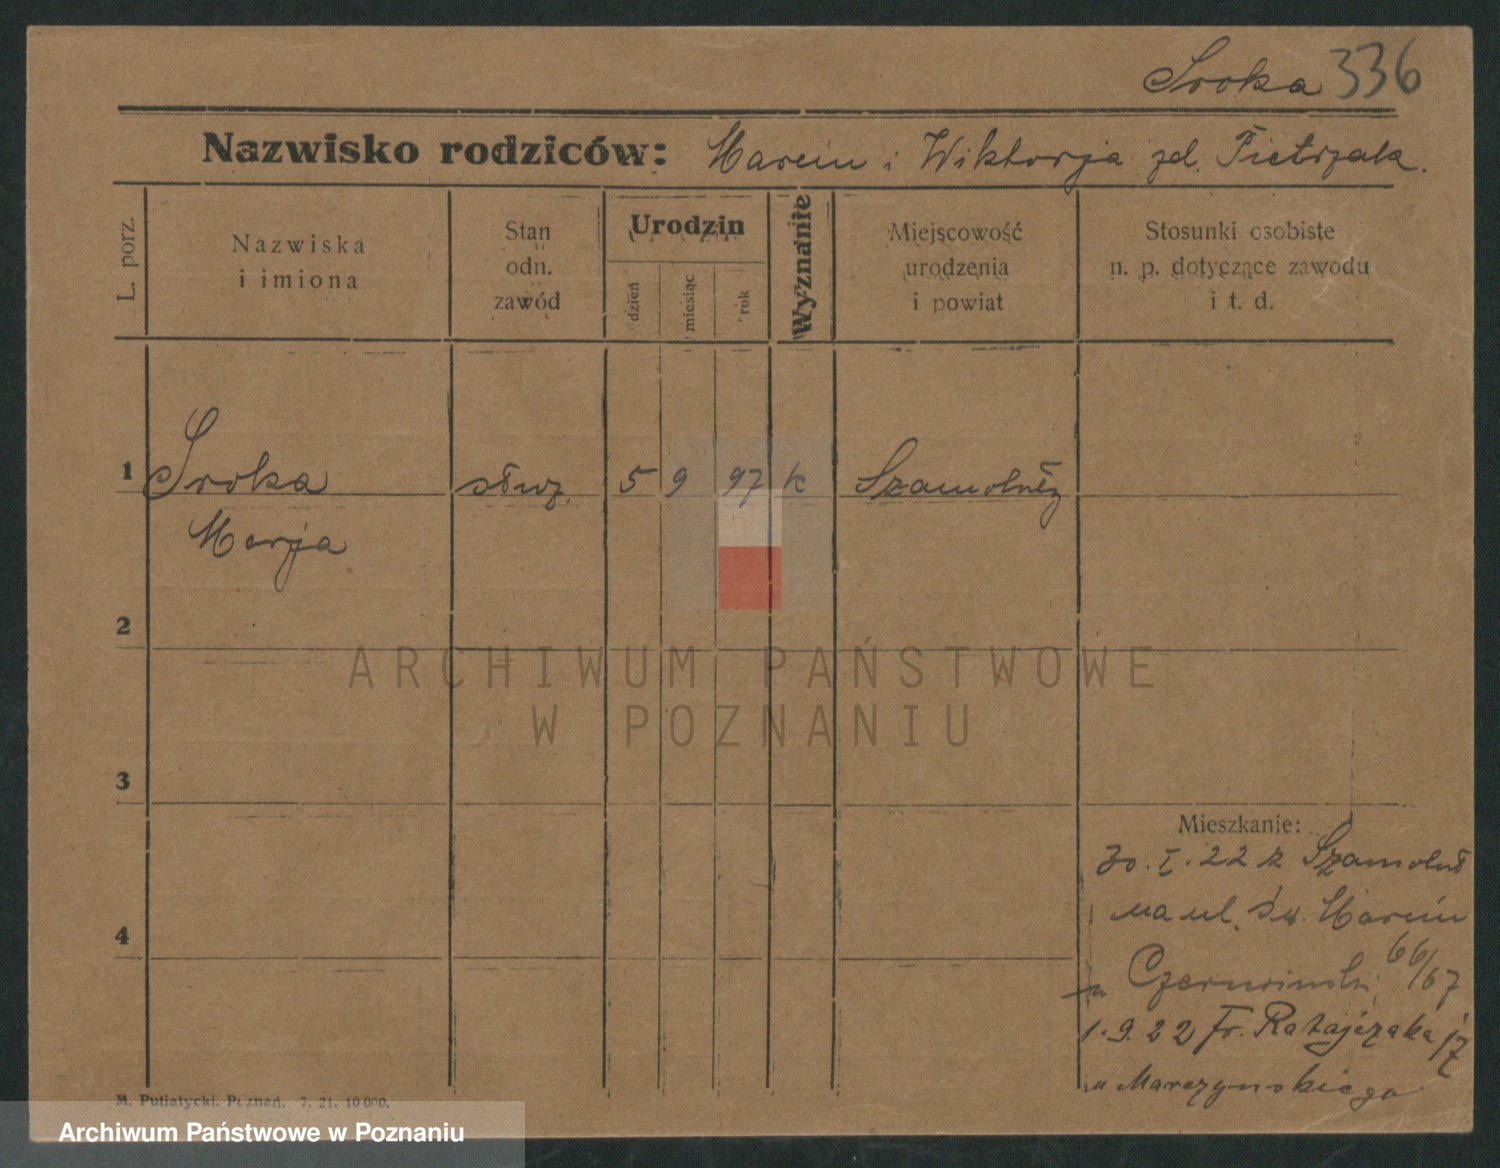 Sroka 336
Nazwisko rodziców: Marcin i Wiktorja zd. Pietrzak.
L. porz.
Nazwiska
i imiona
Stan
odn.
zawód
Urodzin
dzień
miesiąc
rok
Wyznanie
Miejscowość
urodzenia
i powiat
Stosunki osobiste
n. p. dotyczące zawodu
i t. d.
1 Sroka służ. 5 9 97 k
Marja
2
ARCHIWUM PAŃSTWOWE
W POZNANIU
3
4
Mieszkanie:
30. I. 22 z
na ul. Św. Marcin
66/67
u
1. 9. 22 Fr. Ratajczaka
u Marczyńskiego
M. Putiatycki, Poznań. 7. 21. 10000.
Archiwum Państwowe w Poznaniu